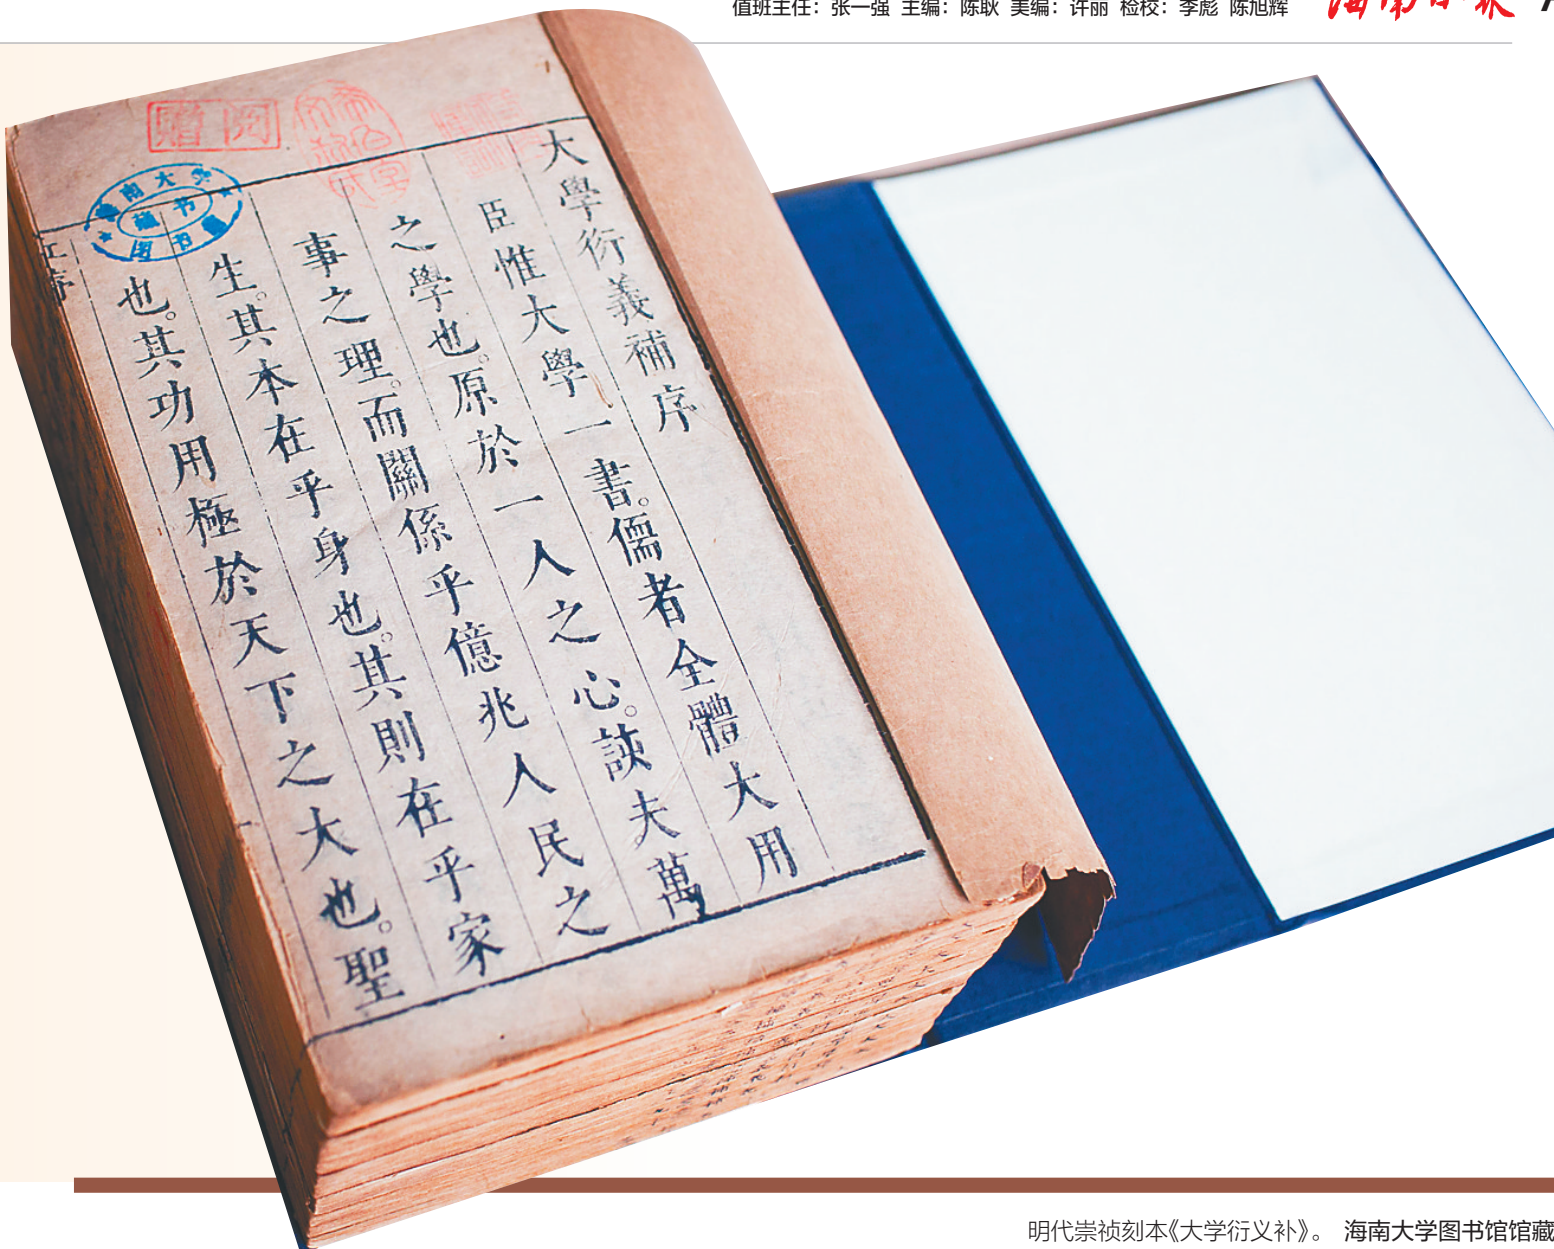 值班主任：张一强 主编：陈耿 美编：许丽 检校：李彪 陈旭辉
海南日报
大學衍義補序
臣惟大學一書。儒者全體大用
之學也。原於一人之心。該夫萬
事之理。而關係乎億兆人民之
生。其本在乎身也。其則在乎家
也。其功用極於天下之大也。聖
贈閱
海南大学
藏书
图书馆
明代崇祯刻本《大学衍义补》。 海南大学图书馆馆藏